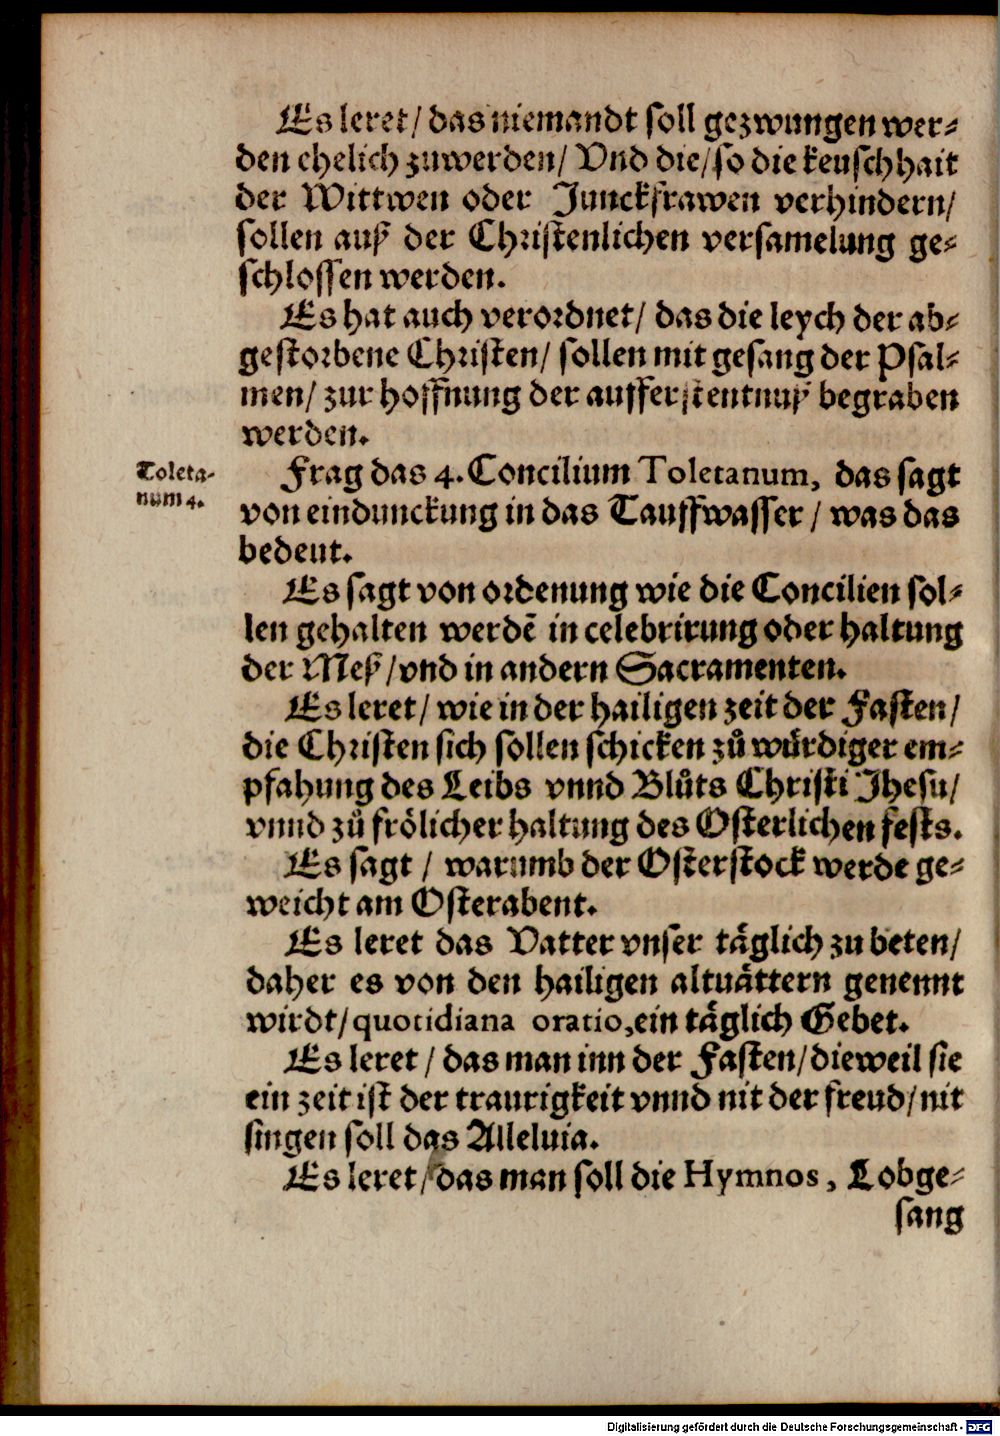 Es leret/ das niemandt soll gezwungen wer-
den ehelich zuwerden/ Vnd die/ so die keuschhait
der Wittwen oder Junckfrawen verhindern/
sollen auß der Christenlichen versamelung ge-
schlossen werden.
Es hat auch verordnet/ das die leych der ab-
gestorbene Christen/ sollen mit gesang der Psal-
men/ zur hoffnung der aufferstentnuß begraben
werden.
Toleta-
num 4.
Frag das 4. Concilium Toletanum, das sagt
von eindunckung in das Tauffwasser/ was das
bedeut.
Es sagt von ordenung wie die Concilien sol-
len gehalten werdē in celebrirung oder haltung
der Meß/ vnd in andern Sacramenten.
Es leret/ wie in der hailigen zeit der Fasten/
die Christen sich sollen schicken zů würdiger em-
pfahung des Leibs vnnd Blůts Christi Jhesu/
vnnd zů frölicher haltung des Osterlichen fests.
Es sagt/ warumb der Osterstock werde ge-
weicht am Osterabent.
Es leret das Vatter vnser täglich zu beten/
daher es von den hailigen altuättern genennt
wirdt/ quotidiana oratio, ein täglich Gebet.
Es leret/ das man inn der Fasten/ dieweil sie
ein zeit ist der traurigkeit vnnd nit der freud/ nit
singen soll das Alleluia.
Es leret/ das man soll die Hymnos, Lobge-
sang
Digitalisierung gefördert durch die Deutsche Forschungsgemeinschaft - DFG